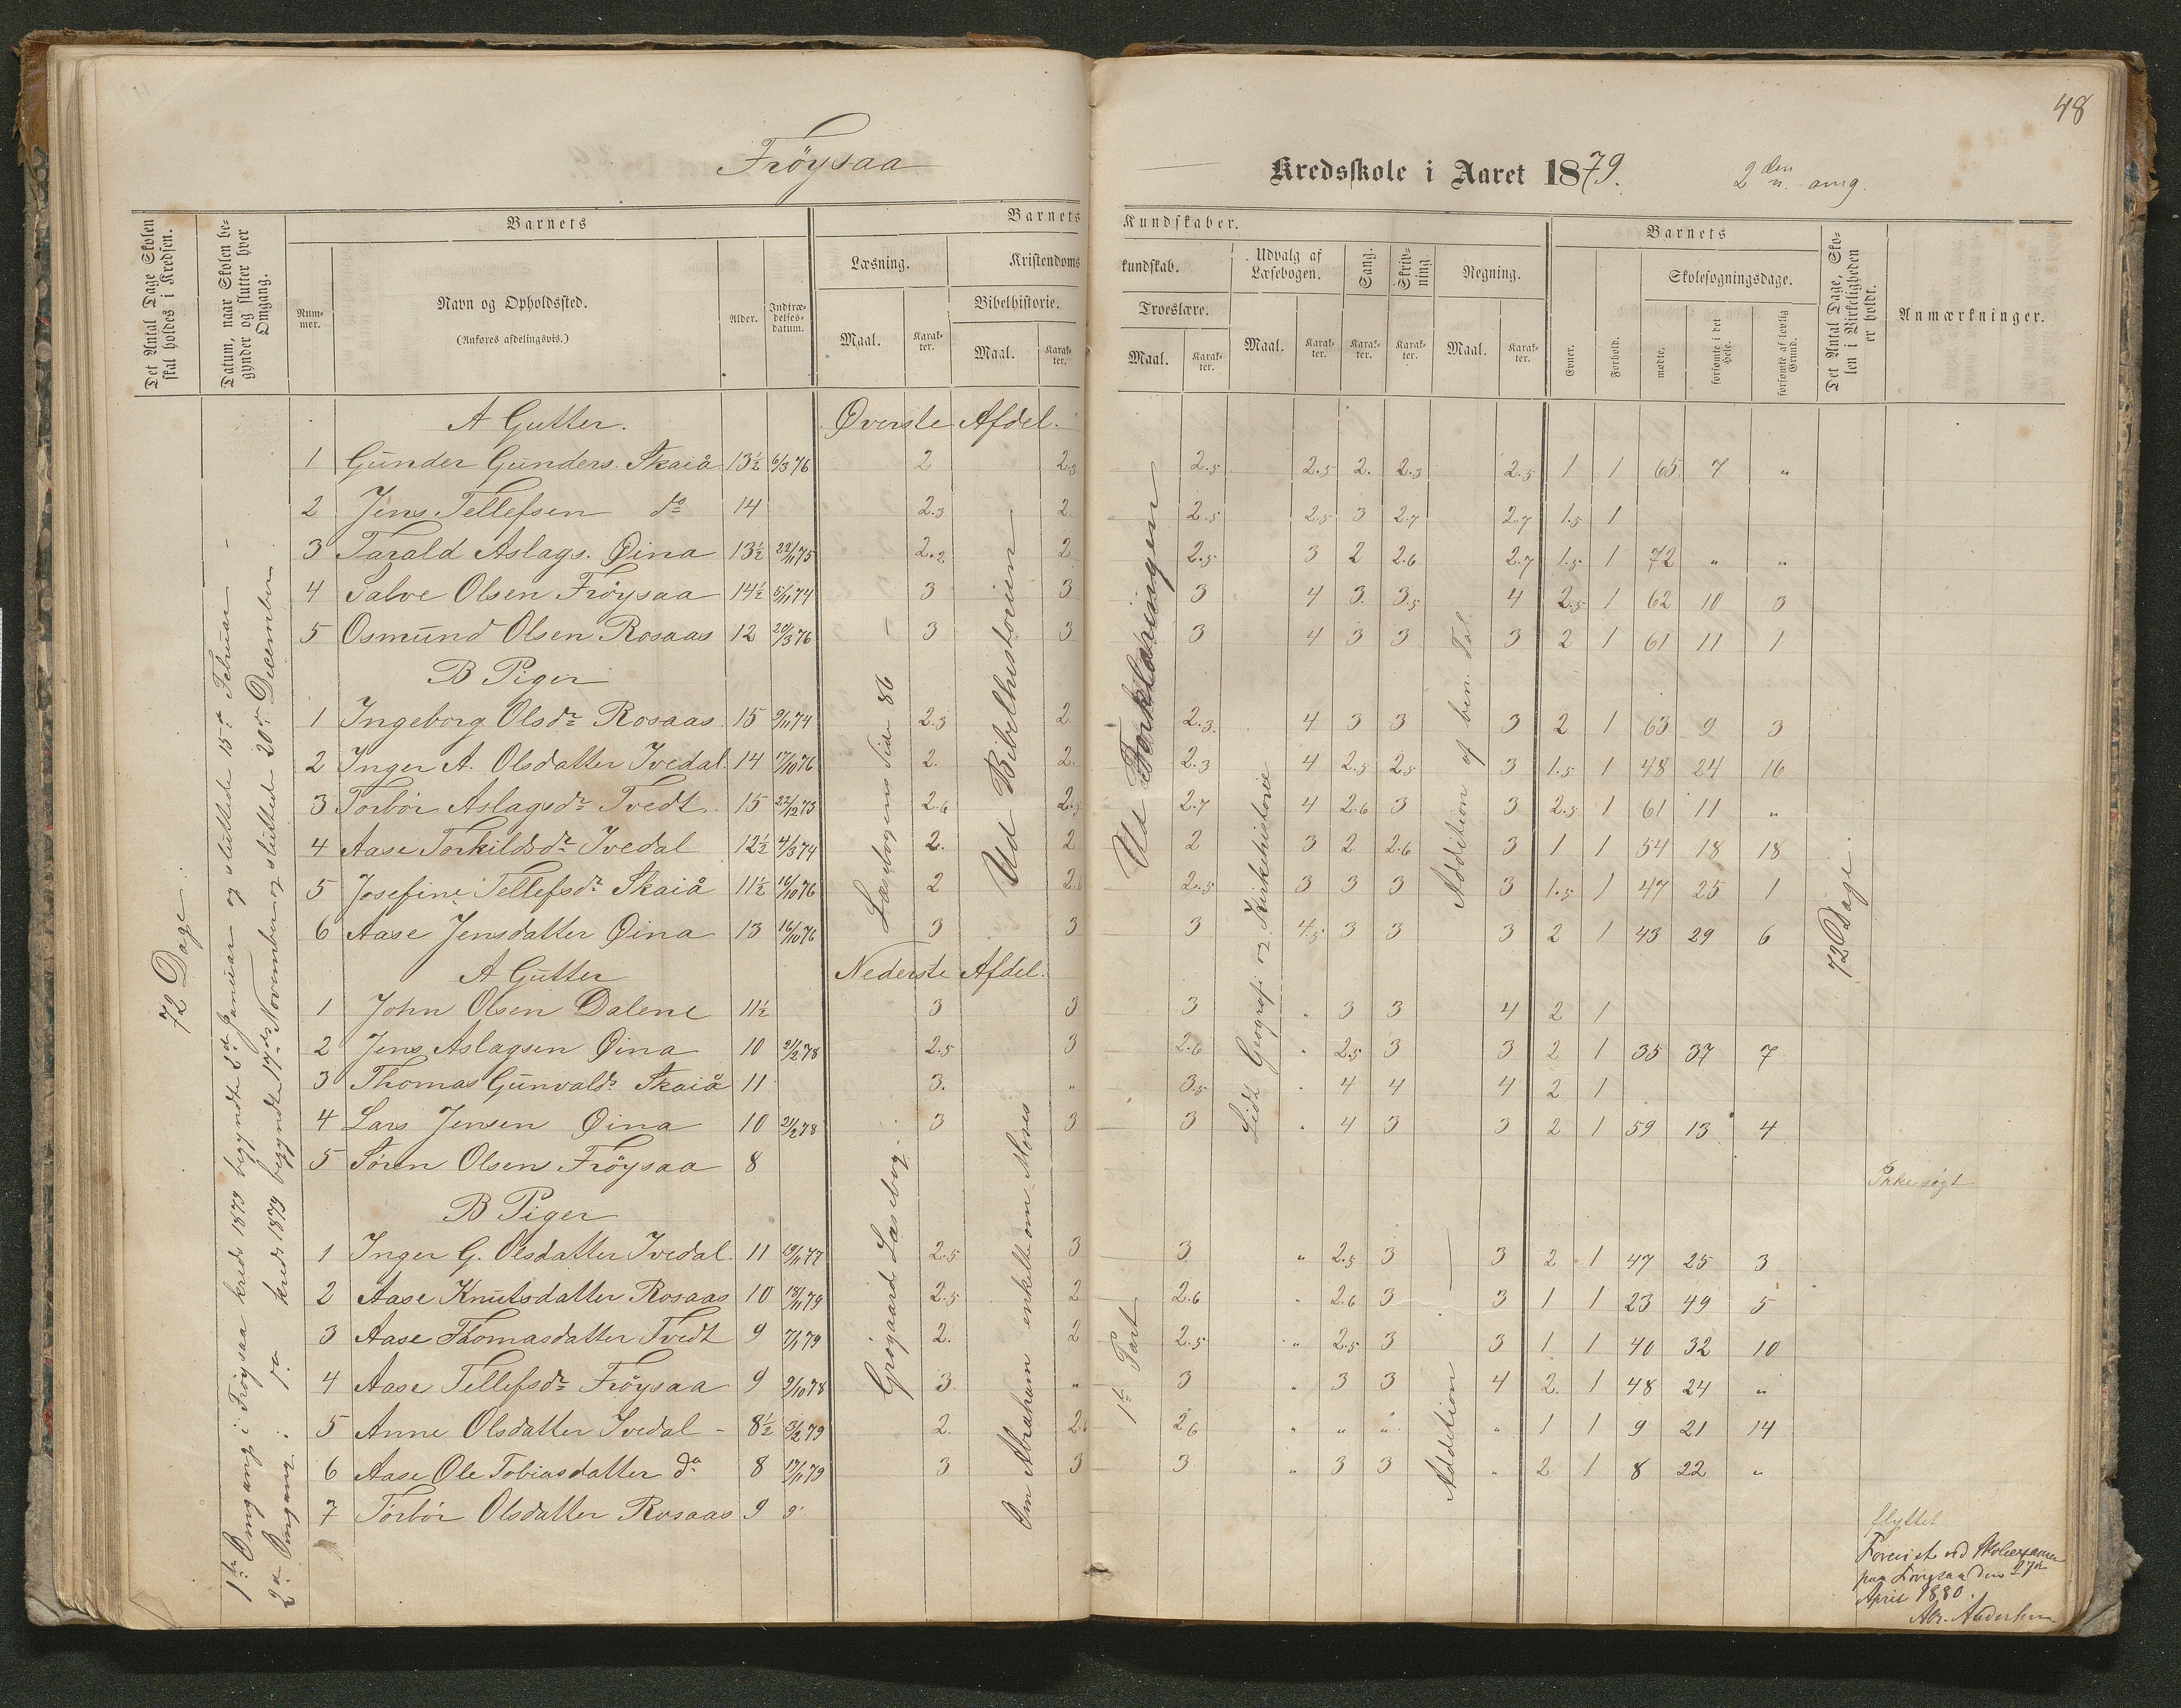 48
Fröysaa
Kredsskole i Aaret 1879. 2den omg.
Det Antal Dage Skolen skal holdes i Kredsen.
Datum, naar Skolen begynder og slutter hver Omgang.
Barnets
Nummer.
Navn og Opholdssted.
(Anføres afdelingsvis.)
Alder.
Indtrædelsesdatum.
Barnets Kundskaber.
Læsning.
Maal. Karakter.
Kristendomskundskab.
Bibelhistorie.
Maal. Karakter.
Troeslære.
Maal. Karakter.
Udvalg af Læsebogen.
Maal. Karakter.
Sang.
Karakter.
Skrivning.
Karakter.
Regning.
Maal. Karakter.
Barnets
Evner.
Forhold.
Skolesøgningsdage.
mødte.
forsømte i det Hele.
forsømte af lovlig Grund.
Det Antal Dage, Skolen i Virkeligheden er holdt.
Anmærkninger.
72 Dage.
1ste Omgang i Fröysaa kreds 1879 begyndte 3de Januar og sluttede 15de Februar -
2den Omgang i do kreds 1879 begyndte 17de November og sluttede 20de December
A Gutter. Øverste Afdel.
1 Gunder Gunders. Skaiå 13½ 6/3 76 2 2.3 2.5 2.5 2. 2.3 2.5 1 1 65 7 "
2 Jens Tellefsen do 14 2.3 2. 2.5 2.5 3 2.7 2.7 1.5 1
3 Tarald Aslags. Øina 13½ 22/11 75 2.2 2 2.5 3 2 2.6 2.7 1.5 1 72 " "
4 Salve Olsen Fröysaa 14½ 5/11 74 3 3 3 4 3. 3.5 4 2.5 1 62 10 3
5 Osmund Olsen Rosaas 12 20/3 76 3 3 3 4 3 3 3 2 1 61 11 1
B Piger
1 Ingeborg Olsdr Rosaas 15 9/11 74 2.3 2 2.3 4 3 3 3 2 1 63 9 3
2 Inger A. Olsdatter Ivedal 14 17/10 76 2. 2. 2.3 4 2.5 2.5 3 1.5 1 48 24 16
3 Torbör Aslagsdr Tvedt 15 22/12 73 2.6 2.5 2.7 4 2.6 3 3 2.5 1 61 11 "
4 Aase Torkildsdr Ivedal 12½ 4/3 74 2. 2 2 3 2 2.6 3 1 1 54 18 18
5 Josefine Tellefsdr Skaiå 11½ 16/10 76 2 2.6 2.5 3 3 3 3 1.5 1 47 25 1
6 Aase Jensdatter Øina 13 16/10 76 3 3 3 4.5 3 3 3 2 1 43 29 6
A Gutter Nederste Afdel.
1 John Olsen Dalene 11½ 3 3 3 " 3 3 4 2 1
2 Jens Aslagsen Øina 10 21/2 78 2.5 3 2.6 " 2.5 3 3 2 1 35 37 7
3 Thomas Gunvalds Skaiå 11 3. " 3.5 " 4 4 4 2 1
4 Lars Jensen Øina 10 21/2 78 3 3 3 " 4 3 3 2 1 59 13 4
5 Sören Olsen Fröysaa 8 Ikke søgt
B Piger
1 Inger G. Olsdatter Ivedal. 11 19/11 77 2.5 3 3 " 2.5 3 3 2 1 47 25 3
2 Aase Knutsdatter Rosaas 10 18/11 79 2.5 2 2.6 " 2.6 3 3 1 1 23 49 5
3 Aase Thomasdatter Tvedt 9 7/1 79 2. 2 2.5 " 2.5 3 3 1 1 40 32 10
4 Aase Tellefsdr Fröysaa 9 2/10 78 3. " 3 " 3 3 4 2. 1 48 24 "
5 Anne Olsdatter Ivedal - 8½ 3/2 79 2. 2.6 2.6 " " " " 1 1 9 21 14
6 Aase Ole Tobiasdatter do 8 17/11 79 3 3 3 " 3 3 " 2 1 8 22 "
7 Torbör Olsdatter Rosaas 9 flyttet
Læsebogens Side 86
Ud Bibelhistorien
Ud Forklaringen
Lidt Geografi og Kirkehistorie
Addition af ben. Tal.
72 Dage.
Grögaard Læsebog.
Om Abraham enkelte om Moses
1ste Part
Addition
Forevist ved Skoleexamen
paa Fröysaa den 27de
April 1880.
Abr. Andersen